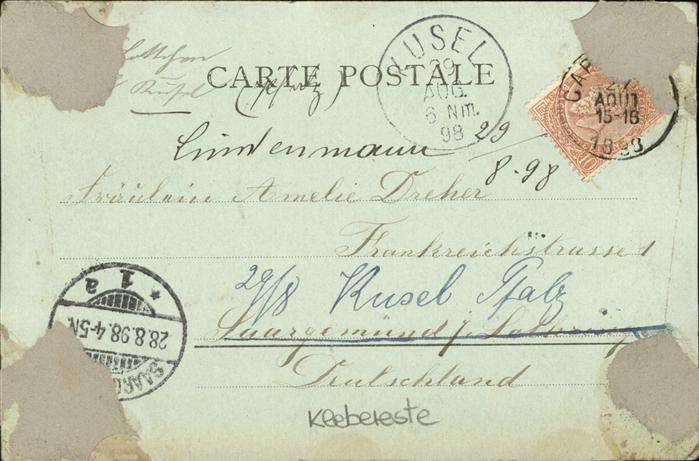 KUSEL
29
AUG.
6 Nm.
98
CARTE POSTALE
Kusel (Pfalz)
CAR
27
AOUT
15-16
1898
Lindenmann
29
8.98
Fräulein Amelie Dreher
Frankreichstrasse 1
29/8 Kusel Pfalz
Saargemünd j. Lothring
Deutschland
* 1 a
28.8.98.4-5N.
SAARG
Klebereste